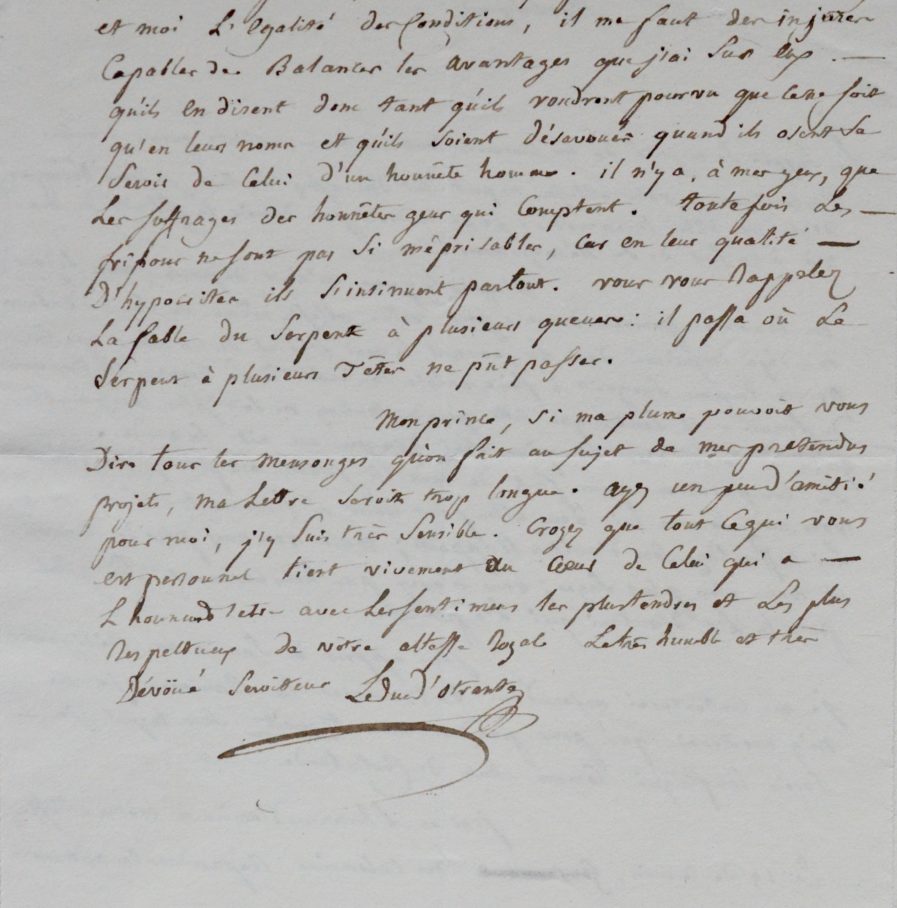 et moi L'egalité des Conditions, il me faut des injures
Capables de Balancer les avantages que j'ai Sur eux. —
qu'ils en disent donc tant qu'ils voudront pourvu que ce ne soit
qu'en leurs noms et qu'ils soient désavoués quand ils osent se
Servir de Celui d'un honnête homme. il n'y a, à mes yeux, que
Les suffrages des honnêtes gens qui Comptent. toutefois Les —
fripons ne sont pas Si méprisables, Car en leur qualité —
D'hypocrites ils S'insinuent partout. vous vous Rappelez
La fable du Serpent à plusieurs queues: il passa où Le
Serpent à plusieurs Têtes ne pût passer.
Mon prince, Si ma plume pouvoit vous
Dire tous les mensonges qu'on fait au sujet de mes pretendus
projets, ma Lettre Seroit trop longue. ayez un peu d'amitié
pour moi, j'y Suis très Sensible. Croyez que tout Ce qui vous
est personnel tient vivement au Cœur de Celui qui a —
L'honneur d'etre avec Les sentimens les plus tendres et Les plus
Respectueux de votre altesse Royale Le très humble et très
Dévoüé Serviteur Le duc d'otrante